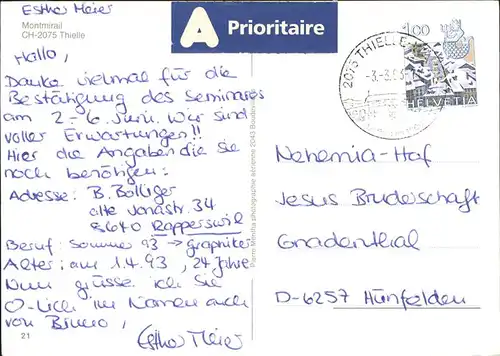 Esther Meier
Montmirail
CH-2075 Thielle
Hallo,
Danke vielmal für die
Bestätigung des Seminares
am 2.-6. Juni. Wir sind
voller Erwartungen!!
Hier die Angaben die sie
noch benötigen:
Adresse: B. Bolliger
alte Jonastr. 34
8640 Rapperswil
Beruf: Sommer 93 → Graphiker
Alter: am 1.4.93, 24 Jahre
Nun grüsse ich Sie
im Namen auch
von
Esther Meier
21
A Prioritaire
2075 THIELLE
100
HELVETIA
Nehemia-Hof
Jesus Bruderschaft
Gnadenthal
D-6257 Hünfelden